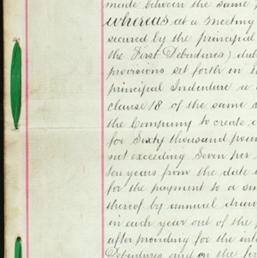 made between the same
whereas at a meeting
secured by the principal
the First Debentures) dul
provisions set forth in t
principal Indenture a
clause 18 of the same
the Company to create
for Sixty thousand poun
not exceeding Seven per
ten years from the date
for the payment to a sin
thereof by annual draw
in each year out of the
after providing for the int
Debentures and on the fir